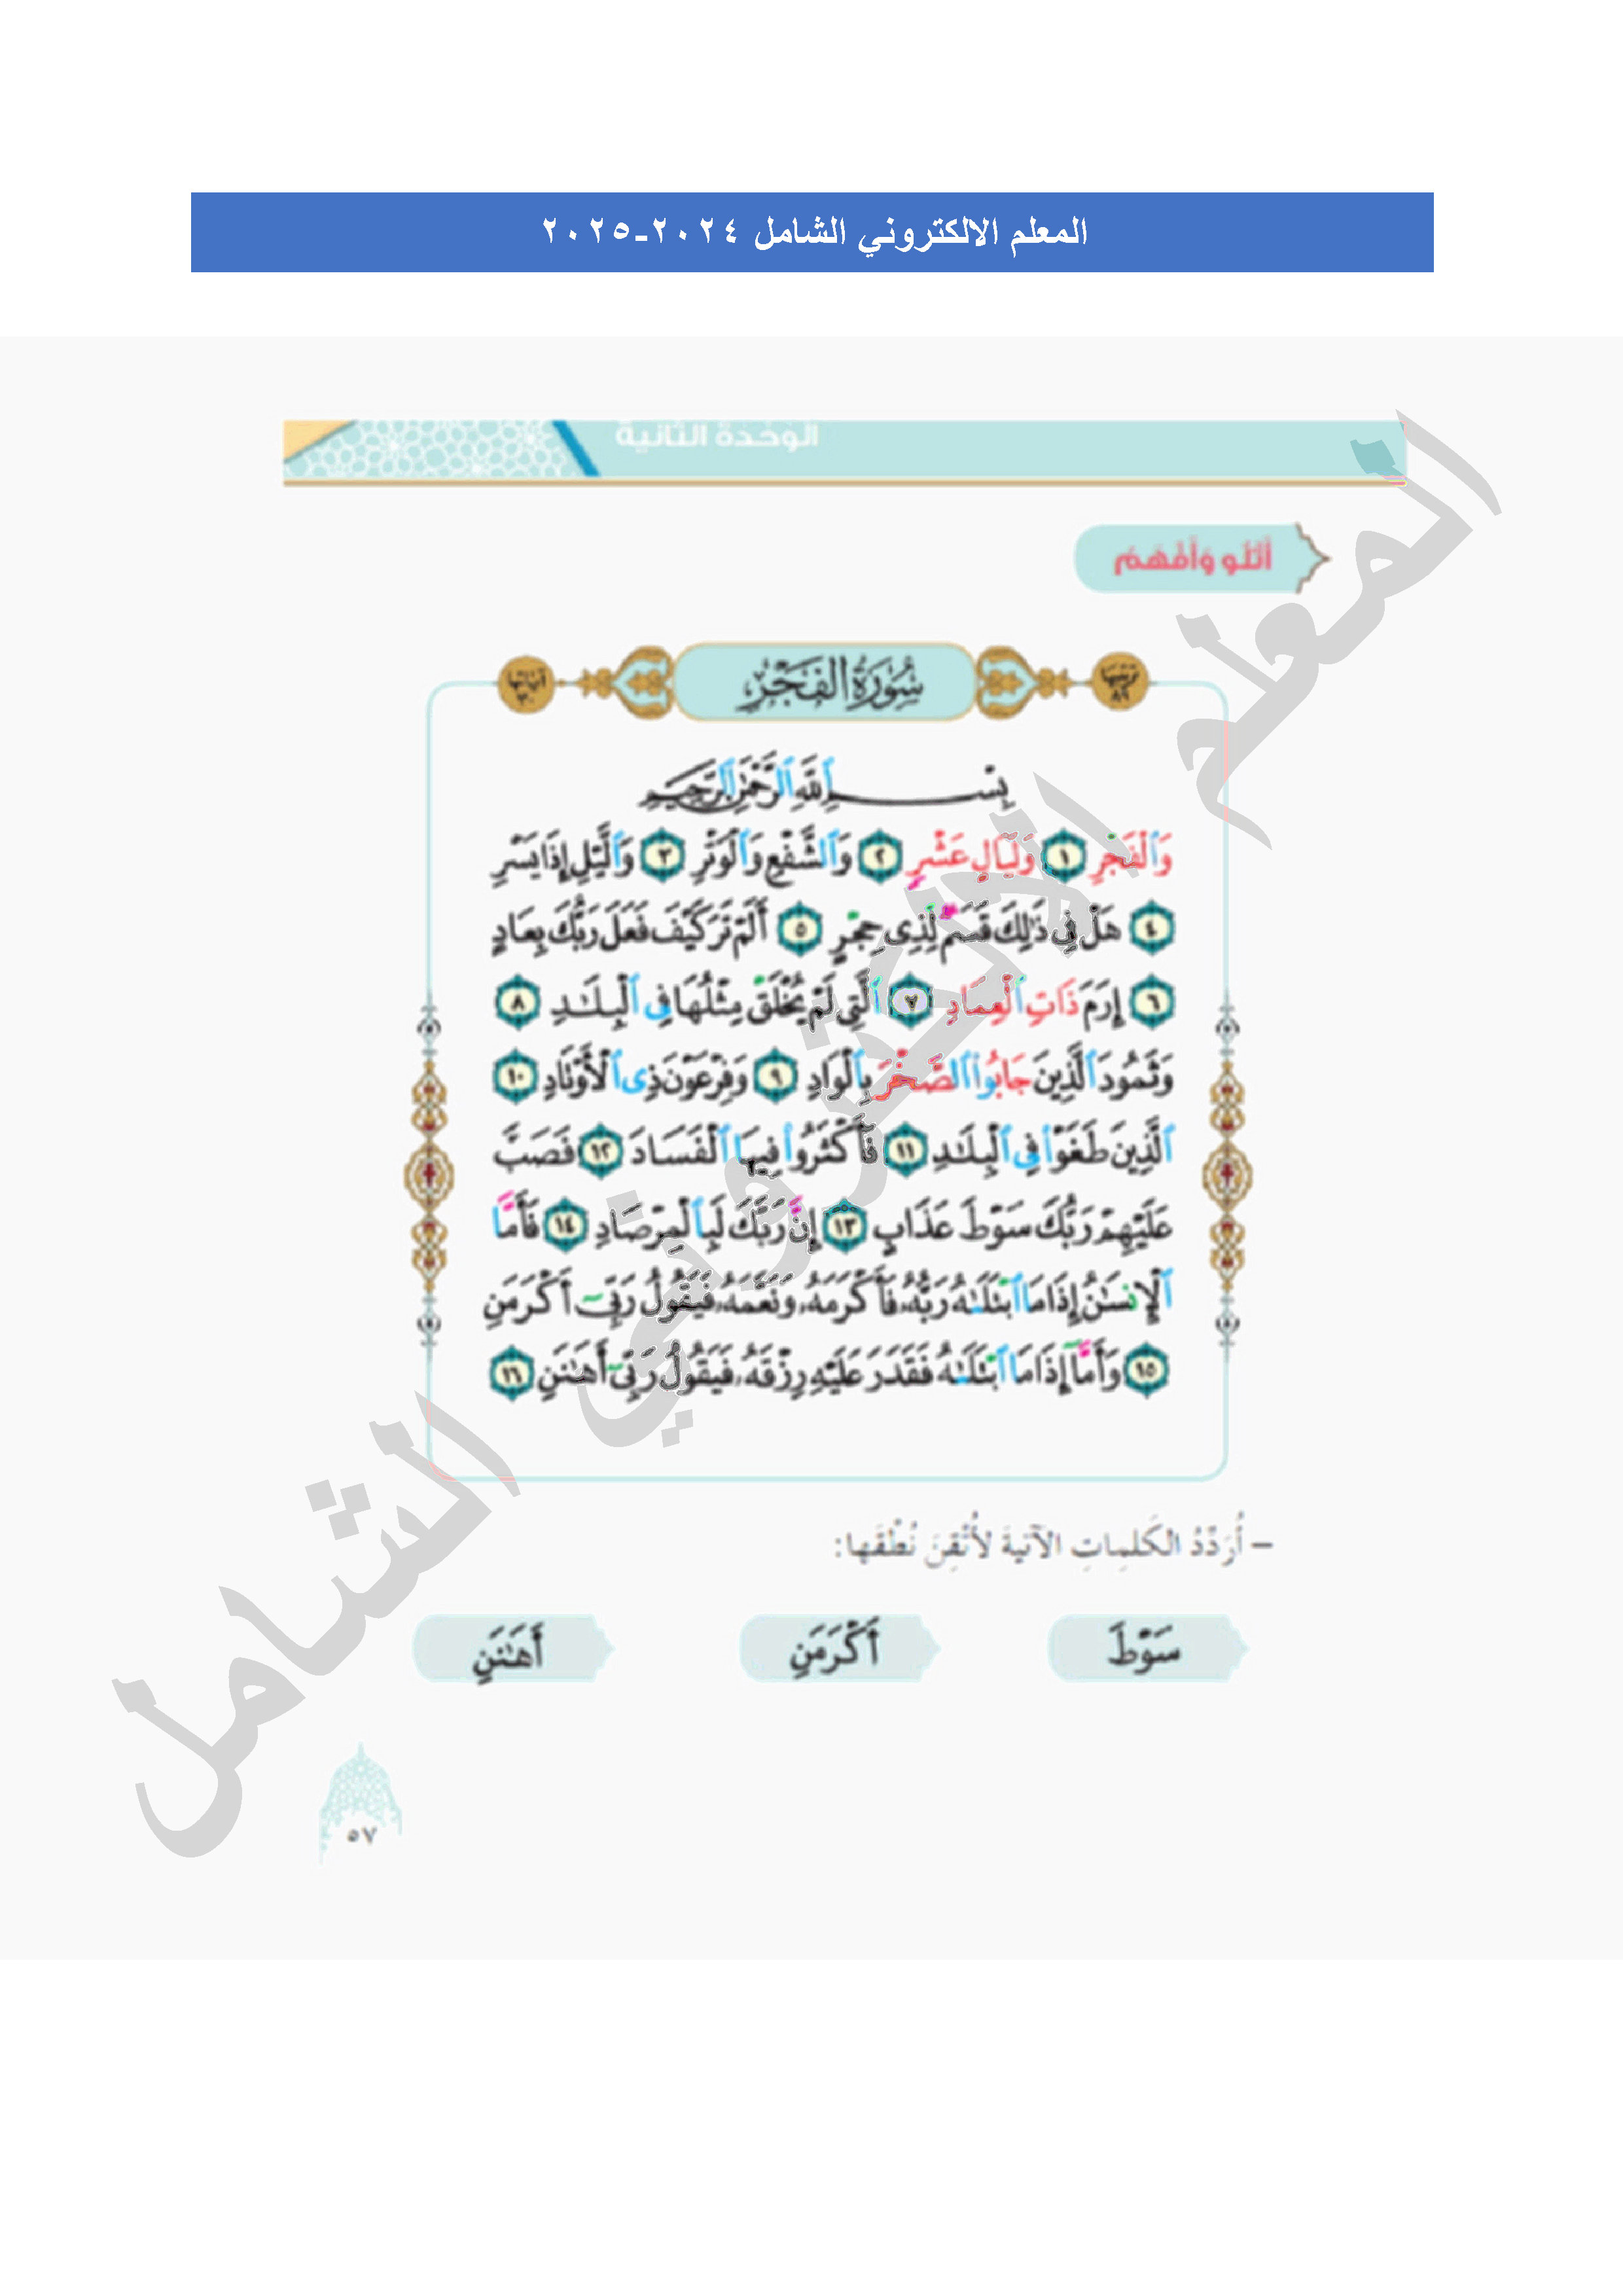 المعلم الالكتروني الشامل ٢٠٢٤-٢٠٢٥
الوَحْدَةُ الثّانِيَةُ
أَتْلو وَأَفْهَمُ
تَرْتِيبُهَا ٨٩
سُورَةُ الفَجْرِ
آيَاتُهَا ٣٠
بِسْمِ ٱللَّهِ ٱلرَّحْمَٰنِ ٱلرَّحِيمِ
وَٱلْفَجْرِ ١ وَلَيَالٍ عَشْرٍ ٢ وَٱلشَّفْعِ وَٱلْوَتْرِ ٣ وَٱلَّيْلِ إِذَا يَسْرِ
٤ هَلْ فِي ذَٰلِكَ قَسَمٌ لِّذِي حِجْرٍ ٥ أَلَمْ تَرَ كَيْفَ فَعَلَ رَبُّكَ بِعَادٍ
٦ إِرَمَ ذَاتِ ٱلْعِمَادِ ٧ ٱلَّتِي لَمْ يُخْلَقْ مِثْلُهَا فِي ٱلْبِلَٰدِ ٨
وَثَمُودَ ٱلَّذِينَ جَابُوا۟ ٱلصَّخْرَ بِٱلْوَادِ ٩ وَفِرْعَوْنَ ذِي ٱلْأَوْتَادِ ١٠
ٱلَّذِينَ طَغَوْا۟ فِي ٱلْبِلَٰدِ ١١ فَأَكْثَرُوا۟ فِيهَا ٱلْفَسَادَ ١٢ فَصَبَّ
عَلَيْهِمْ رَبُّكَ سَوْطَ عَذَابٍ ١٣ إِنَّ رَبَّكَ لَبِٱلْمِرْصَادِ ١٤ فَأَمَّا
ٱلْإِنسَٰنُ إِذَا مَا ٱبْتَلَىٰهُ رَبُّهُۥ فَأَكْرَمَهُۥ وَنَعَّمَهُۥ فَيَقُولُ رَبِّيٓ أَكْرَمَنِ
١٥ وَأَمَّآ إِذَا مَا ٱبْتَلَىٰهُ فَقَدَرَ عَلَيْهِ رِزْقَهُۥ فَيَقُولُ رَبِّيٓ أَهَٰنَنِ ١٦
– أُرَدِّدُ الكَلِماتِ الآتيةَ لأُتْقِنَ نُطْقَها:
سَوْطَ أَكْرَمَنِ أَهَٰنَنِ
٥٧
المعلم الالكتروني الشامل